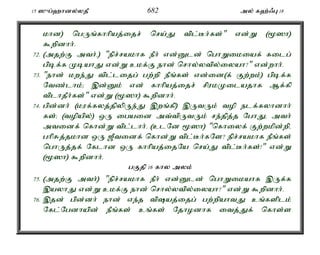 15 ஸுப்ஹானல்லதீ 682 அல் கஹ்ஃபு 18
மான) பெருங்காரியத்தைச் செய்து விட்டீர்கள்" என்று (மூஸா) கூறினார்.
72. (அதற்கு அவர்,) "நிச்சயமாக நீர் என்னுடன் பொறுமையைக் கடைப் பிடிக்க முடியாது என்று உமக்கு நான் சொல்லவில்லையா?" என்றார்.
73. "நான் மறந்து விட்டதைப் பற்றி நீங்கள் என்னை(க் குற்றம்) பிடிக்க வேண்டாம்; இன்னும் என் காரியத்தைச் சிரமமுடையதாக ஆக்கி விடாதீர்கள்" என்று (மூஸா) கூறினார்.
74. பின்னர் (மரக்கலத்திலிருந்து இறங்கி) இருவரும் வழி நடக்கலானார்கள்; (வழியில்) ஒரு பையனை அவ்விருவரும் சந்தித்த போது, அவர் அவனைக் கொன்று விட்டார். (உடனே மூஸா) "கொலைக் குற்றமின்றி, பரிசுத்தமான ஒரு ஜீவனைக் கொன்று விட்டீர்களே? நிச்சயமாக நீங்கள் பொருத்தக் கேடான ஒரு காரியத்தையே செய்து விட்டீர்கள்!" என்று (மூஸா) கூறினார்.
பகுதி 16 கால அலம்
75. (அதற்கு அவர்) "நிச்சயமாக நீர் என்னுடன் பொறுமையாக இருக்க இயலாது என்று உமக்கு நான் சொல்லவில்லையா?" என்று கூறினார்.
76. இதன் பின்னர் நான் எந்த விஷயத்தைப் பற்றியாவது உங்களிடம் கேட்பேனாயின் நீங்கள் உங்கள் தோழனாக வைத்துக் கொள்ள